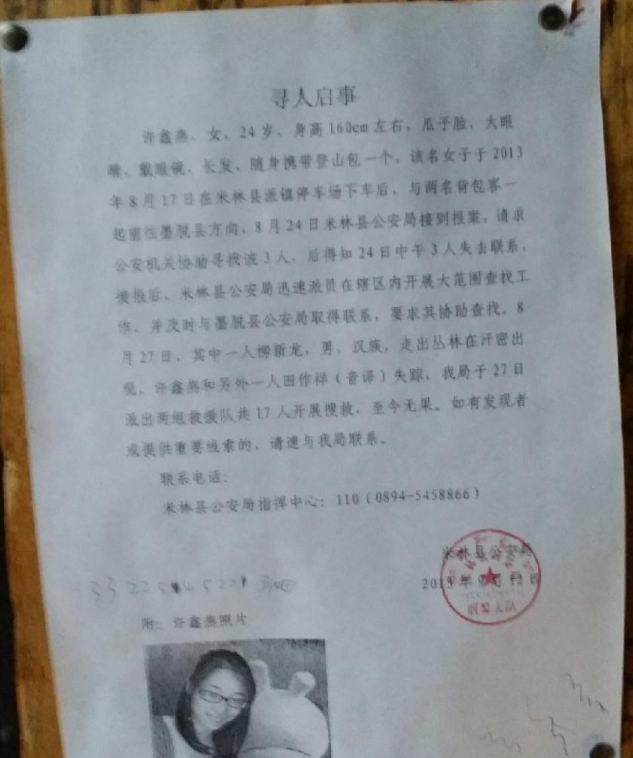 寻人启事
许鑫燕、女、24岁、身高160cm左右，瓜子脸，大眼
睛、戴眼镜，长发，随身携带登山包一个，该名女子于2013
年8月17日在米林县派镇停车场下车后，与两名背包客一
起前往墨脱县方向，8月24日米林县公安局接到报案，请求
公安机关协助寻找该3人，后得知24日中午3人失去联系，
接报后、米林县公安局迅速派员在辖区内开展大范围查找工
作、并及时与墨脱县公安局取得联系，要求其协助查找。8
月27日、其中一人柳新龙，男、汉族，走出丛林在汗密出
现、许鑫燕和另外一人田作样（音译）失踪，我局于27日
派出两组救援队共17人开展搜救，至今无果。如有发现者
或提供重要线索的、请速与我局联系。
联系电话：
米林县公安局指挥中心：110（0894-5458866）
米林县公安局
2013年 月12日
刑警大队
附：许鑫燕照片